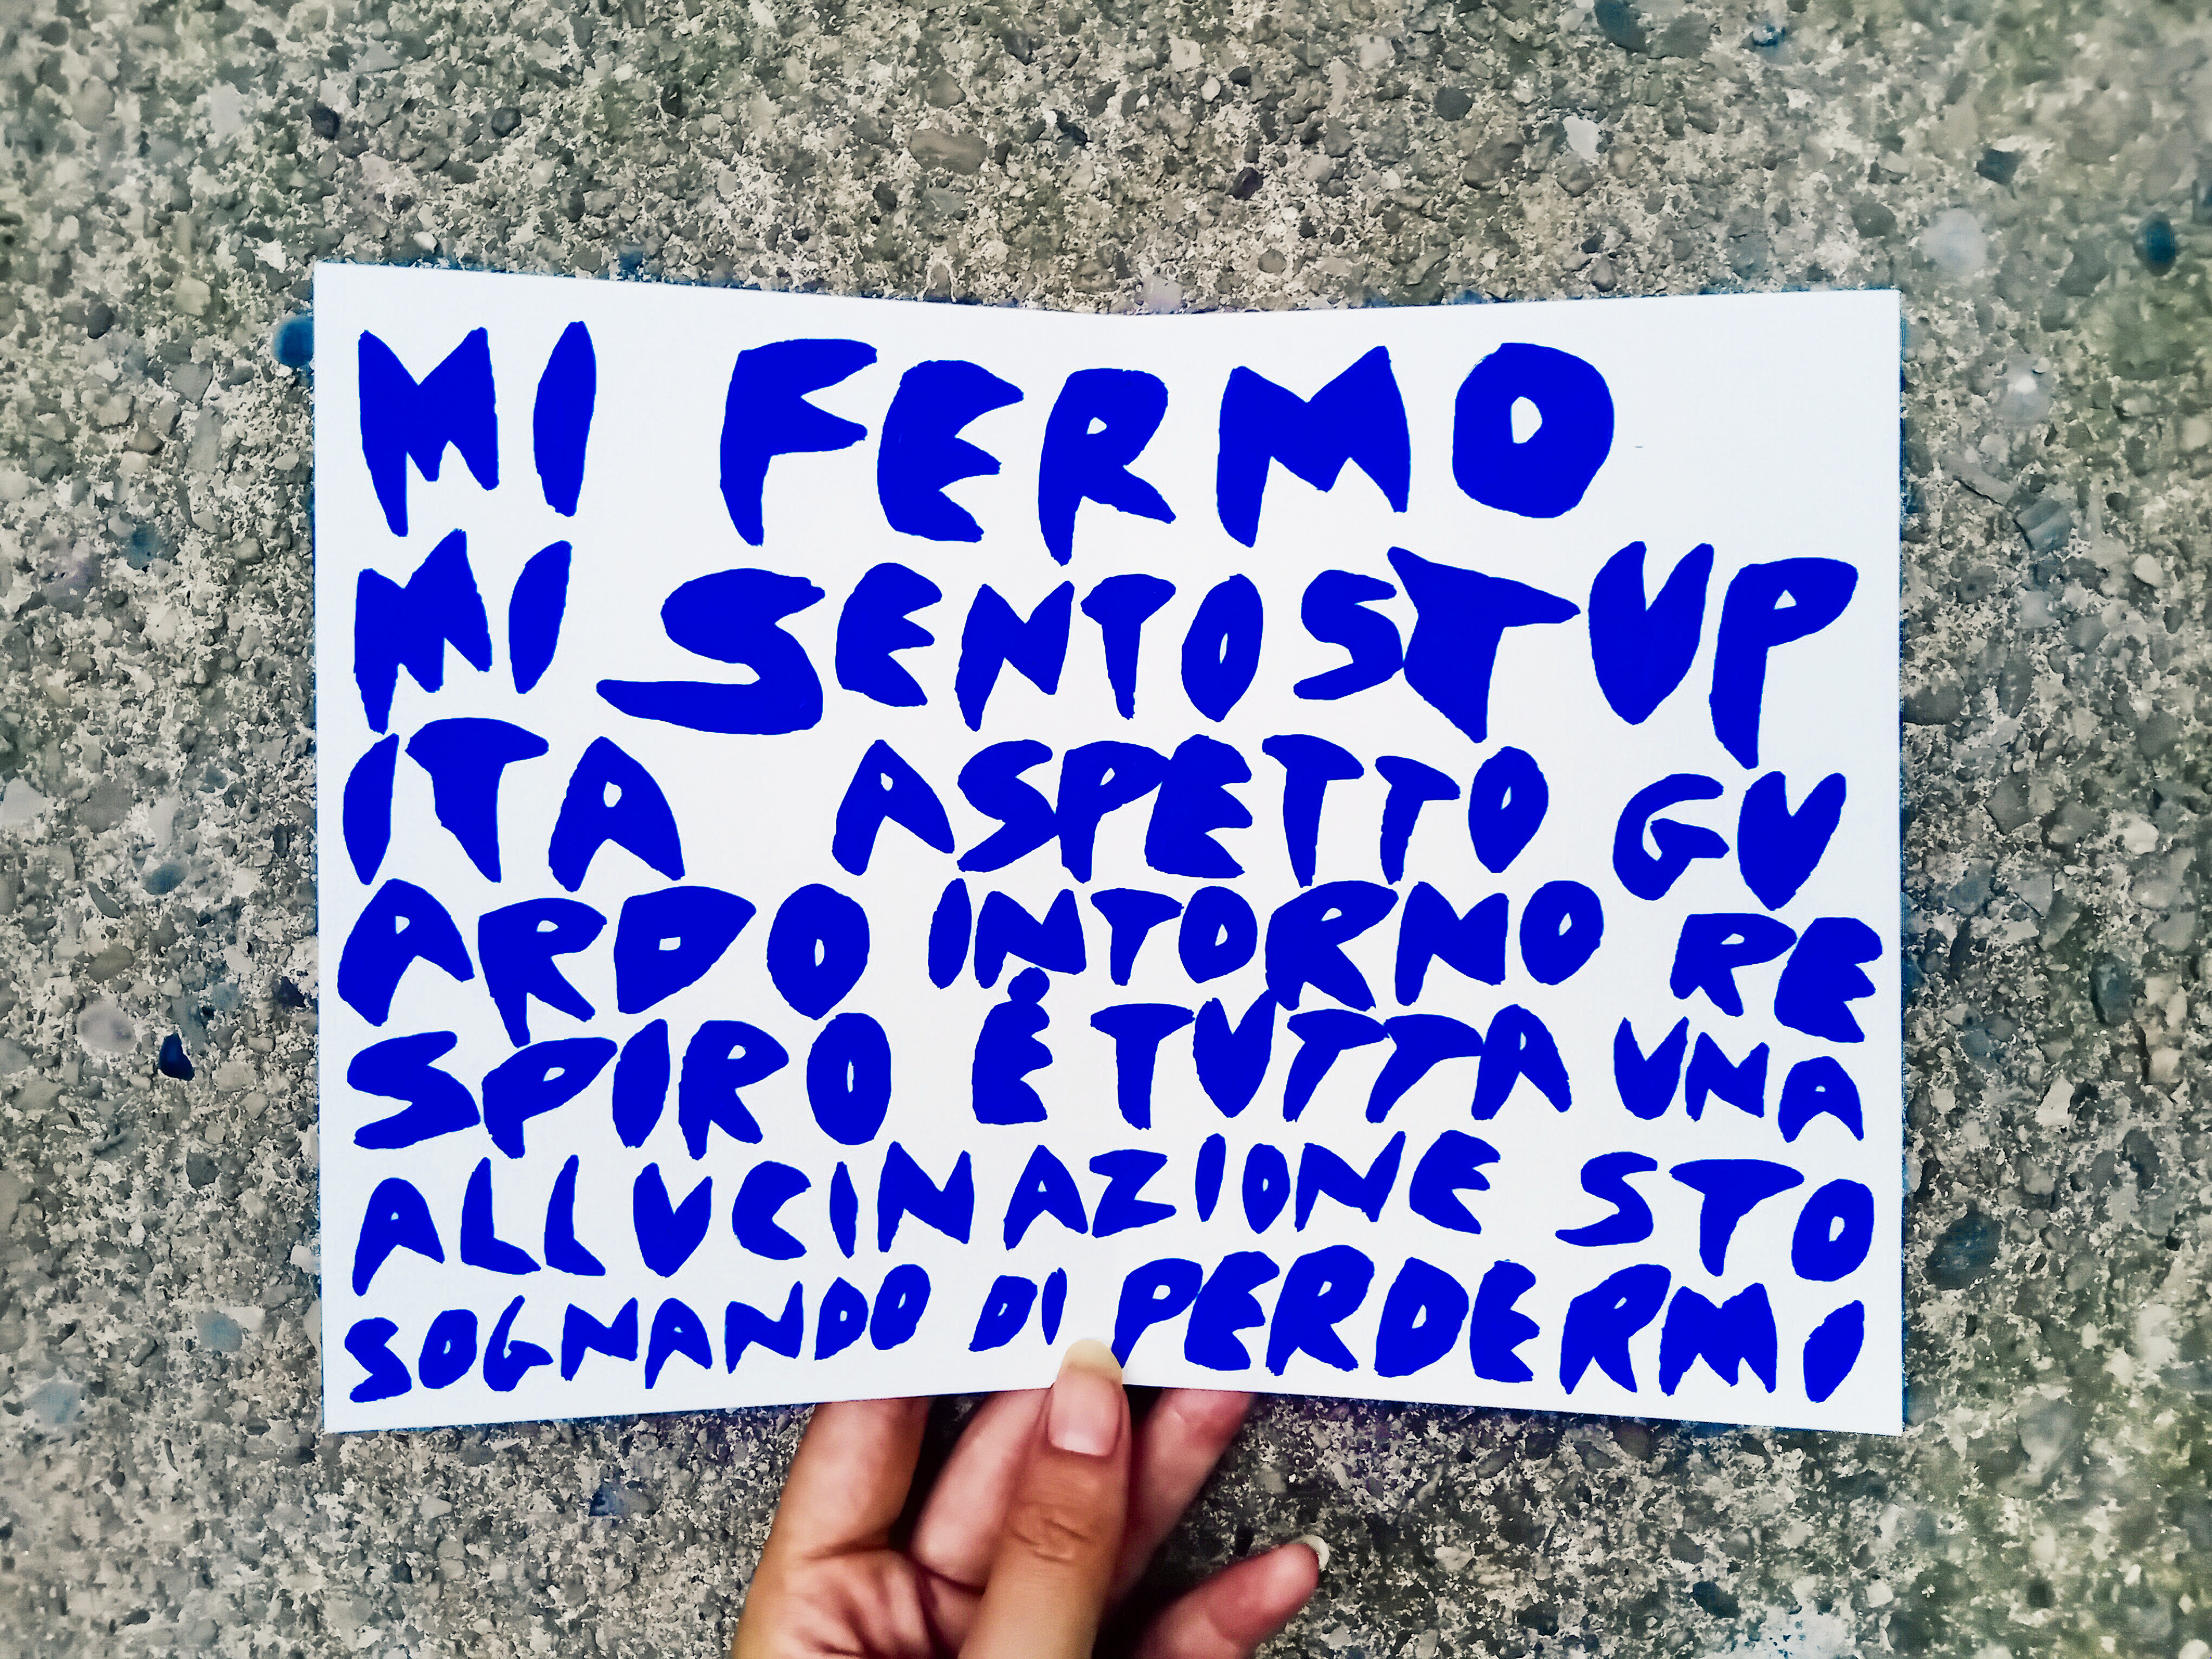 MI FERMO
MI SENTO STUP
ITA ASPETTO GU
ARDO INTORNO RE
SPIRO È TUTTA UNA
ALLUCINAZIONE STO
SOGNANDO DI PERDERMI